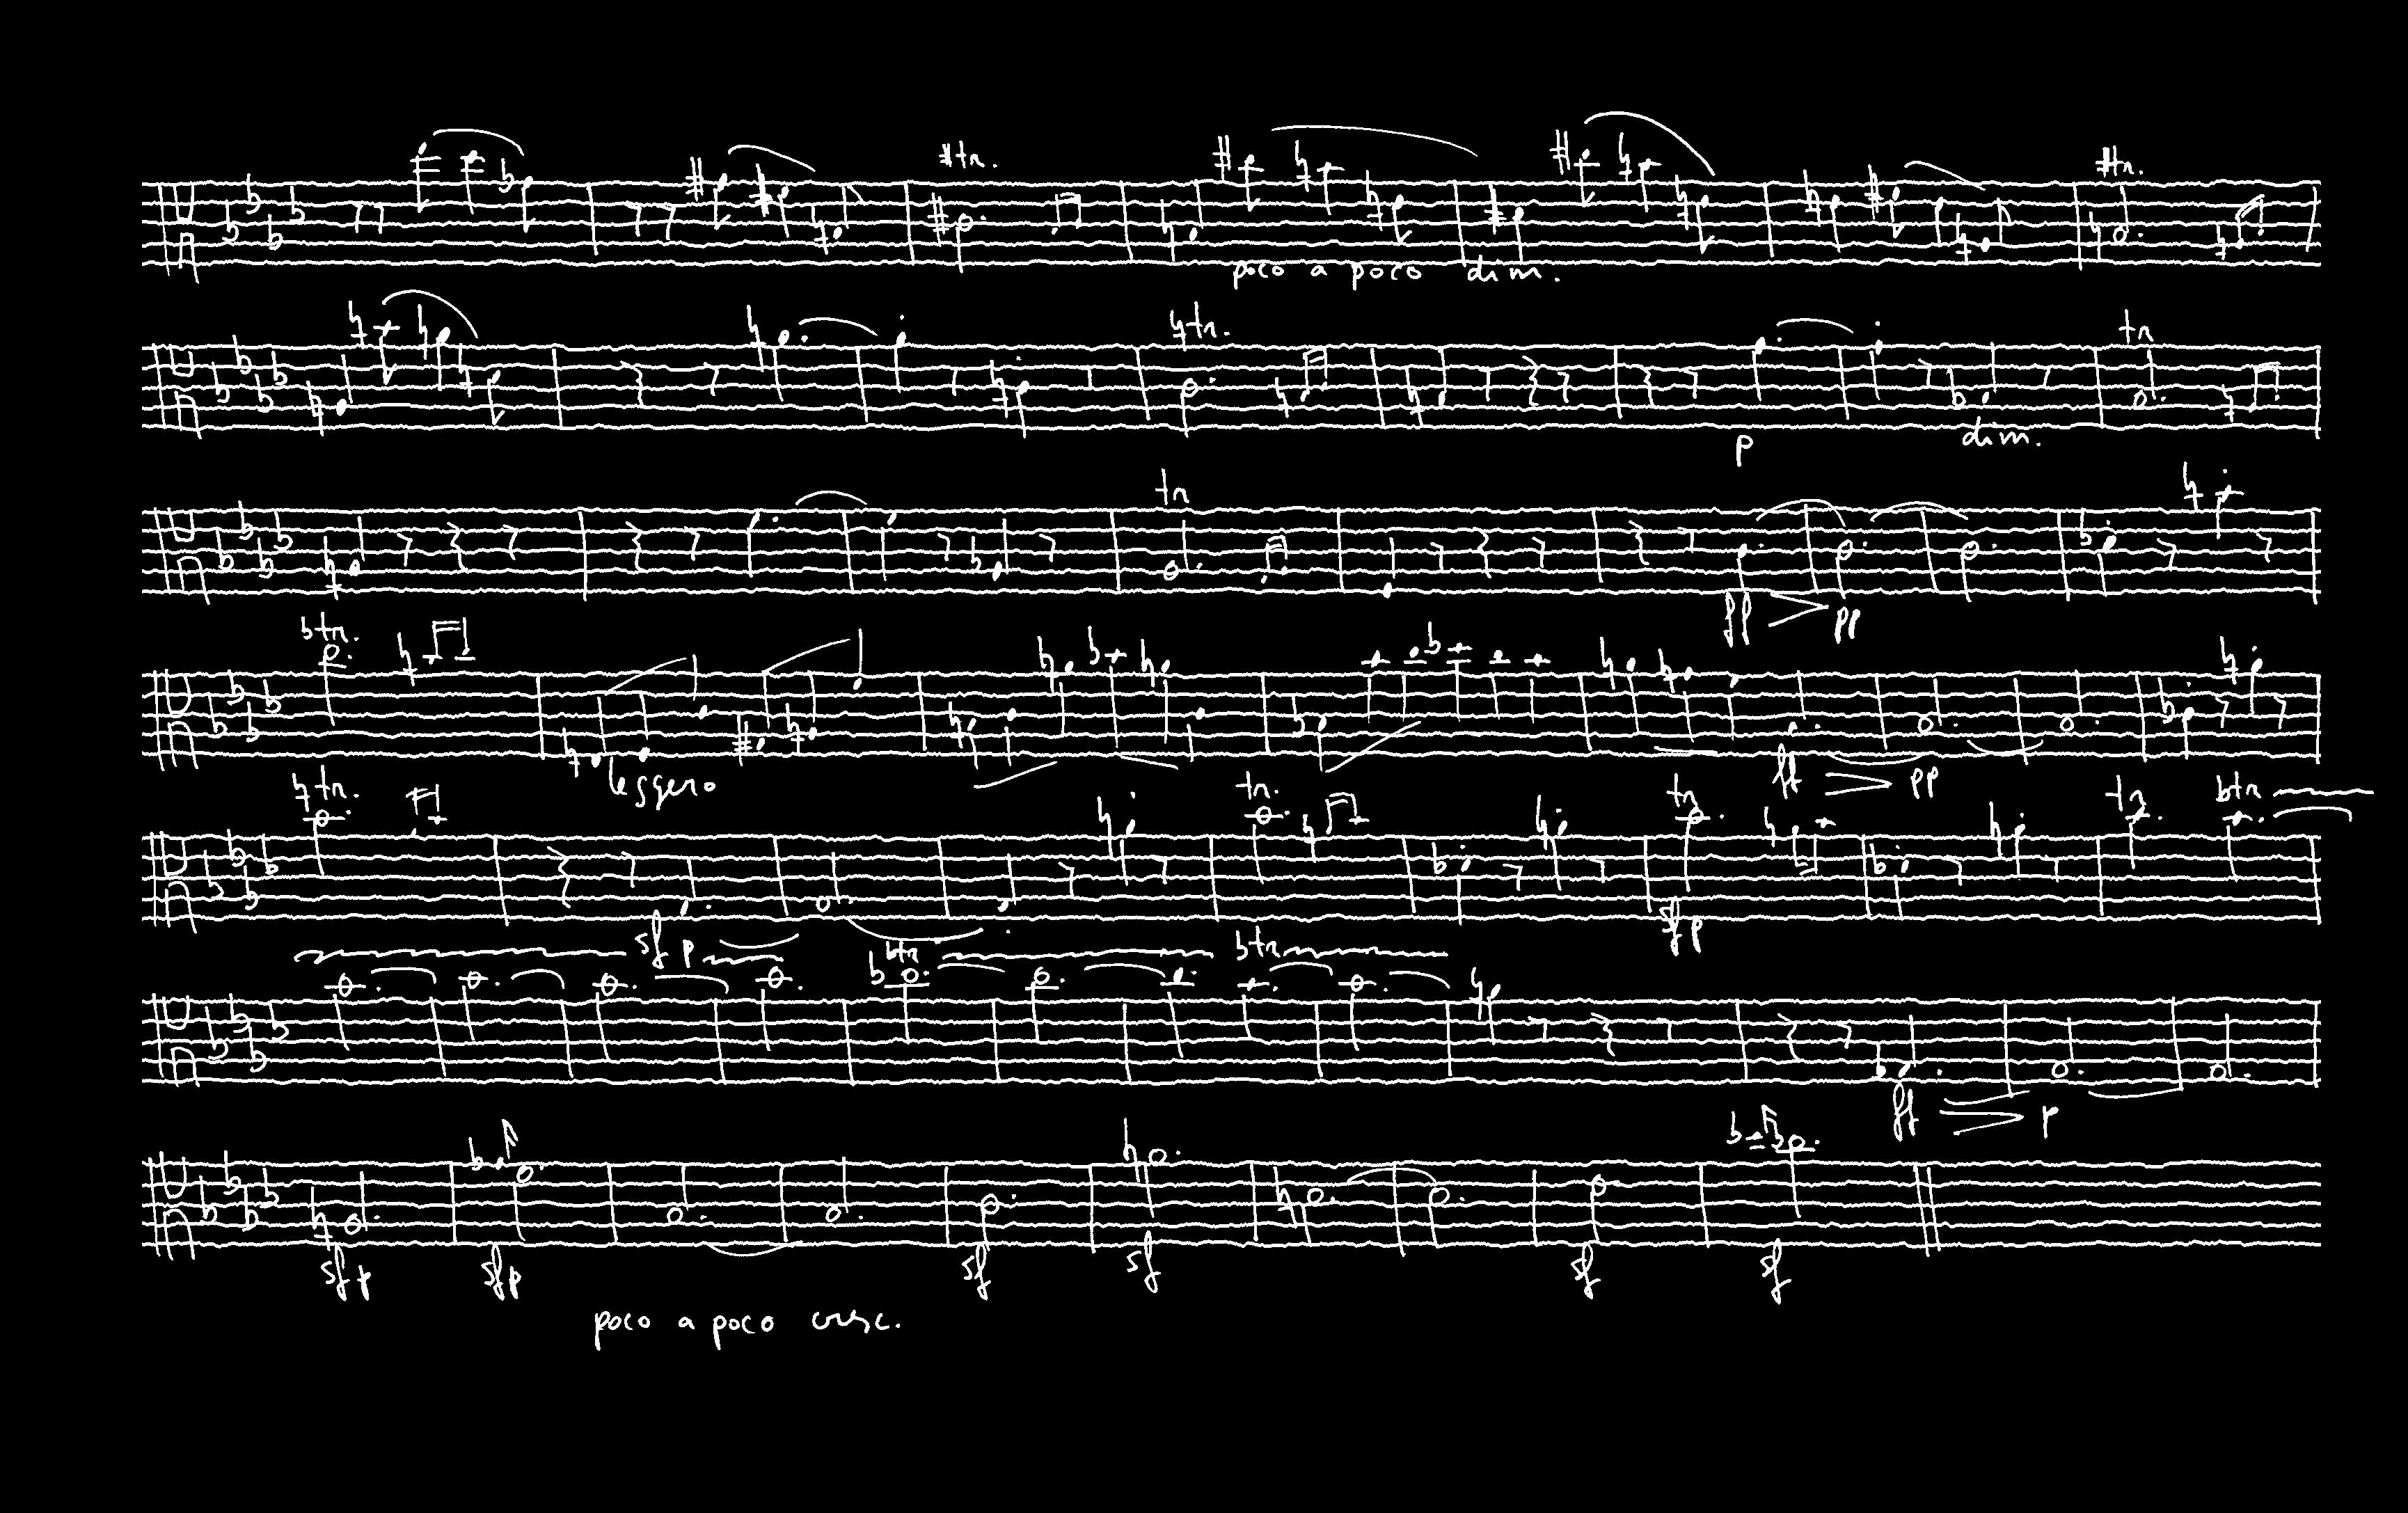 tr. tr.
poco a poco dim.
tr. tr
p dim.
tr
ff pp
tr.
leggero
ff pp
tr. tr. tr tr. tr
sf p sf p
tr tr
ff p
sf p sf p sf sf sf sf
poco a poco cresc.